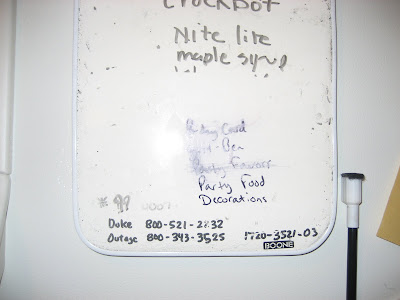 Crockpot
Nite lite
maple syrup
Card
Ben
Party Favors
Party Food
Decorations
# 99
Duke 800-521-2232
Outage 800-343-3525
1720-3521-03
BOONE